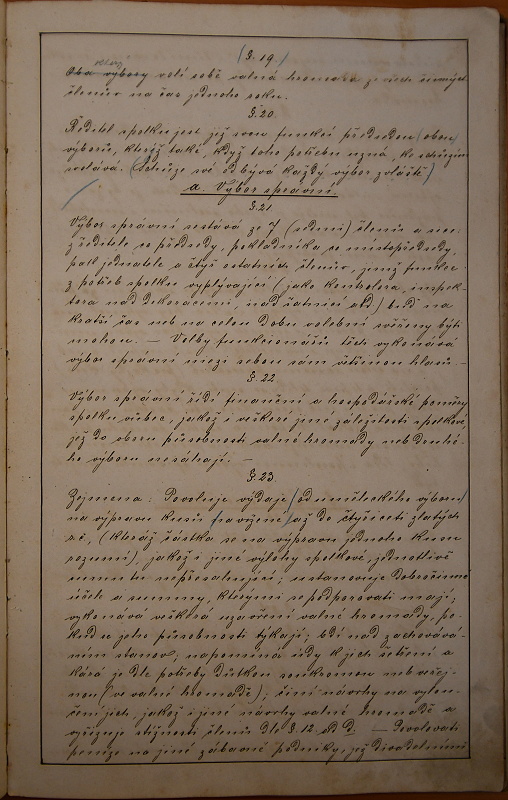 (§. 19.)
který
Oba výbory volí sobě valná hromada ze všech činných
členův na čas jednoho roku.
§. 20.
Ředitel spolku jest jež svou funkcí předsedou (obou)
výborů, kteréž také, když toho potřebu uzná, ke schůzím
svolává. (Schůze své odbývá každý výbor zvláště)
a. Výbor správní.
§. 21.
Výbor správní sestává ze 7 (sedmi) členův a sice:
z ředitele co předsedy, pokladníka co místopředsedy,
pak jednatele a čtyř ostatních členův, jimž funkce
z potřeb spolku vyplývající (jako kontrolora, inspek-
tora nad dekoracemi, nad šatnicí atd.) buď na
kratší čas neb na celou dobu volební svěřeny býti
mohou. — Volby funkcionářův těch vykonává
výbor správní mezi sebou sám většinou hlasů. —
§. 22.
Výbor správní řídí finanční a hospodářské poměry
spolku vůbec, jakož i veškeré jiné záležitosti spolkové,
jež do oboru působnosti valné hromady neb druhé-
ho výboru nesáhají. —
§. 23.
Zejmena: Povoluje výdaje (od uměleckého výboru)
na výpravu kusů (navržené) až do čtyřiceti zlatých
r. č., (kteráž částka se na výpravu jednoho kusu
rozumí), jakož i jiné výlohy spolkové, jednotlivě
summu tu nepřesahující; ustanovuje dobročinné
účele a summy, kterými se podporovati mají;
vykonává veškerá uzavření valné hromady, po-
kud se jeho působnosti týkají; bdí nad zachovává-
ním stanov; napomíná údy k jich šetření a
kárá je dle potřeby důtkou soukromou neb veřej-
nou (ve valné hromadě); činí návrhy na vylou-
čení jich, jakož i jiné návrhy valné hromadě a
vyřizuje stížnosti členův dle §. 12 od d. — Povolovati
peníze na jiné zábavné podniky, jež divadelními